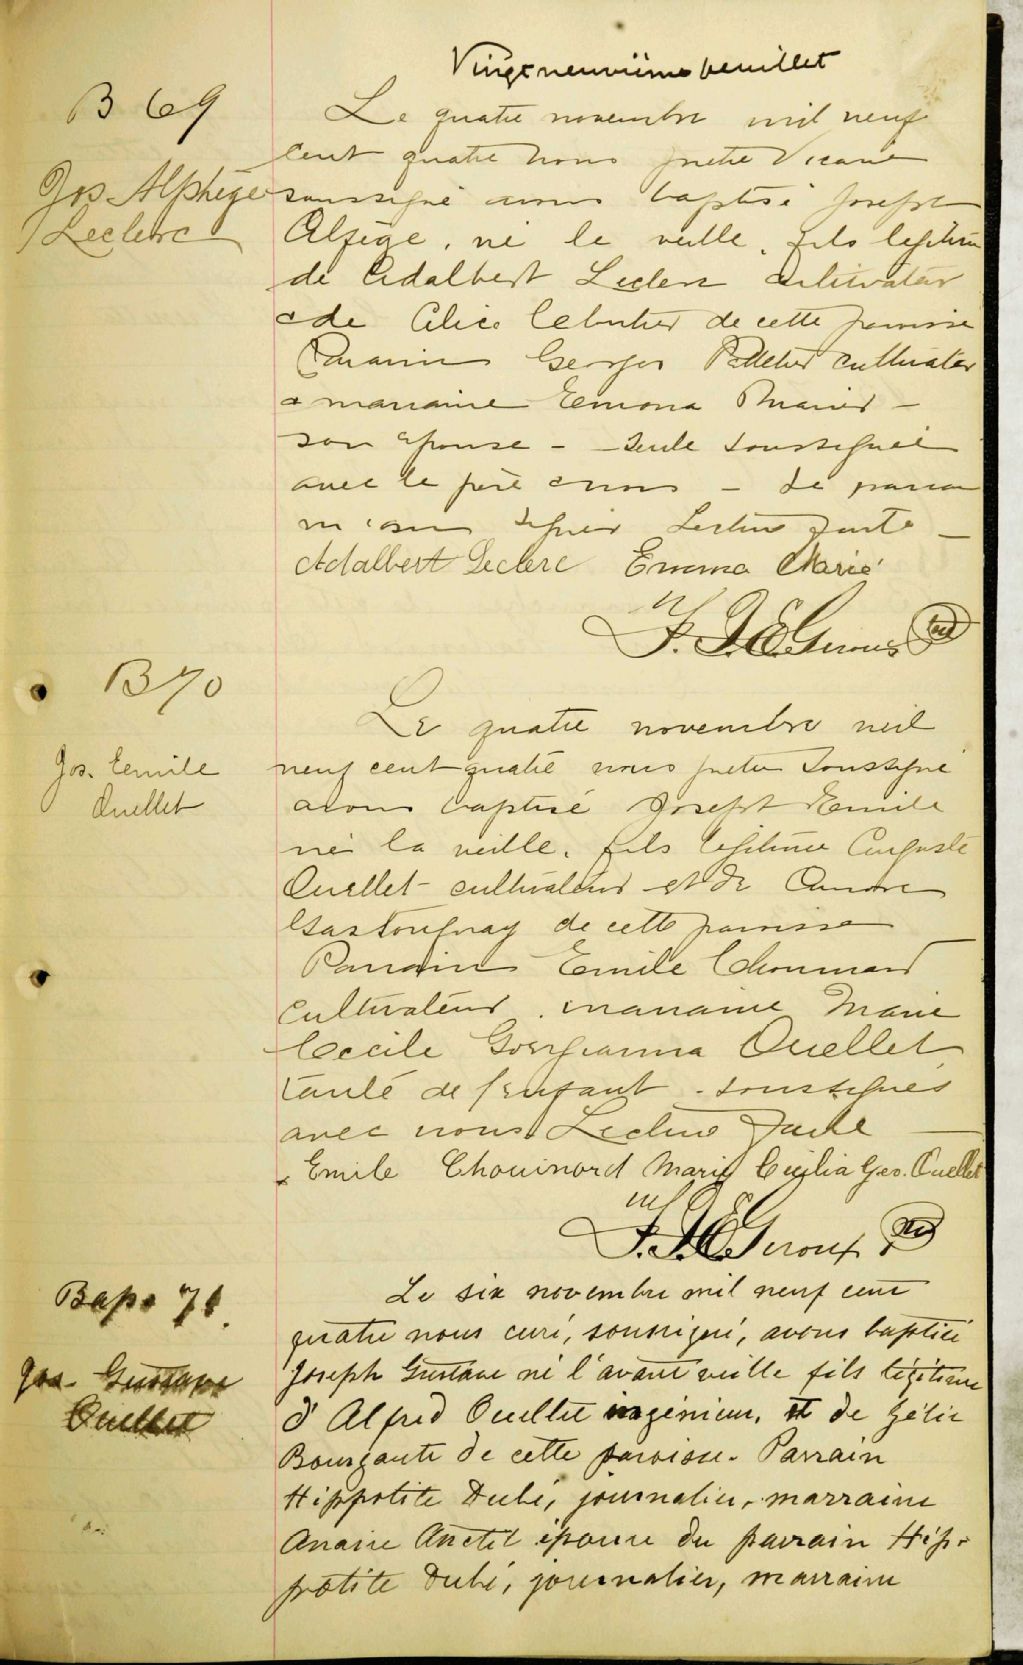 Vingt neuvième feuillet
B 69
Jos. Alphège
Leclerc
Le quatre novembre mil neuf
cent quatre nous prêtre vicaire
soussigné avons baptisé Joseph
Alfège, né le veille, fils légitime
de Adalbert Leclerc cultivateur
& de Alice de cette paroisse
Parrain Georges Pelletier cultivateur
& marraine Emma
son épouse - seule soussignée
avec le père & nous - Le parrain
signer Lecture faite
Adalbert Leclerc Emma Marié
F. J. E. Giroux ptre
B 70
Jos. Emile
Ouellet
Le quatre novembre mil
neuf cent quatre nous prêtre soussigné
avons baptisé Joseph Emile
né la veille, fils légitime Auguste
Ouellet cultivateur et de
Gastonguay de cette paroisse
Parrain Emile Chouinard
cultivateur, marraine Marie
Cecile Georgianna Ouellet
tante de l'enfant - soussignés
avec nous. Lecture faite
Emile Chouinard Marie Cecilia Geo. Ouellet
F. J. E. Giroux ptre
Bap. 71.
Jos. Gustave
Ouellet
Le six novembre mil neuf cent
quatre nous curé, soussigné, avons baptisé
Joseph Gustave né l'avant veille fils légitime
d'Alfred Ouellet ingénieur, et de Zélie
Bourgault de cette paroisse. Parrain
Hippolite Dubé, journalier, marraine
Anaïse Anctil épouse du parrain Hip-
polite Dubé, journalier, marraine